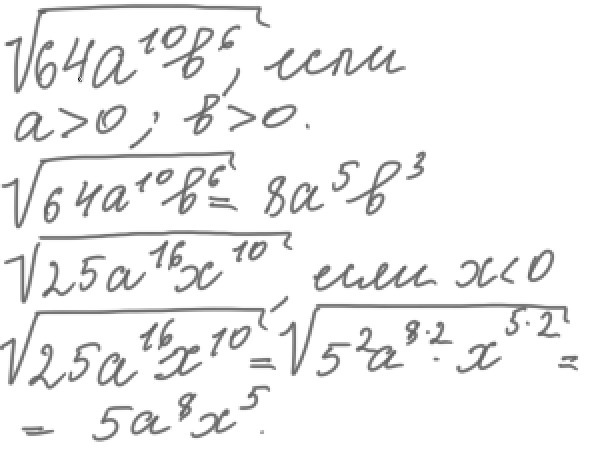 √64a¹⁰b⁶, если
a>0; b>0.
√64a¹⁰b⁶ = 8a⁵b³
√25a¹⁶x¹⁰, если x<0
√25a¹⁶x¹⁰ = √5²a⁸·²·x⁵·² =
= 5a⁸x⁵.